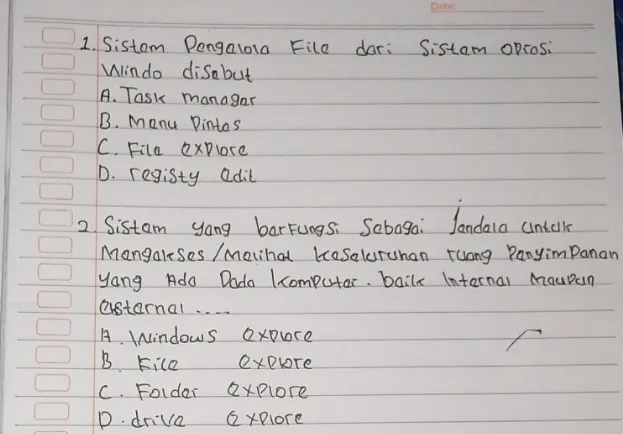 Date:
1. Sistem Pengelola File dari Sistem oprasi
Windo disebut
A. Task manager
B. Menu Pintas
C. File explore
D. registy edit
2. Sistem yang berfungsi Sebagai Jendela untuk
Mengakses / Melihat keseluruhan ruang Penyimpanan
yang Ada Pada komputer. baik Internal Maupun
esternal ....
A. Windows explore
B. File explore
C. Folder explore
D. drive explore